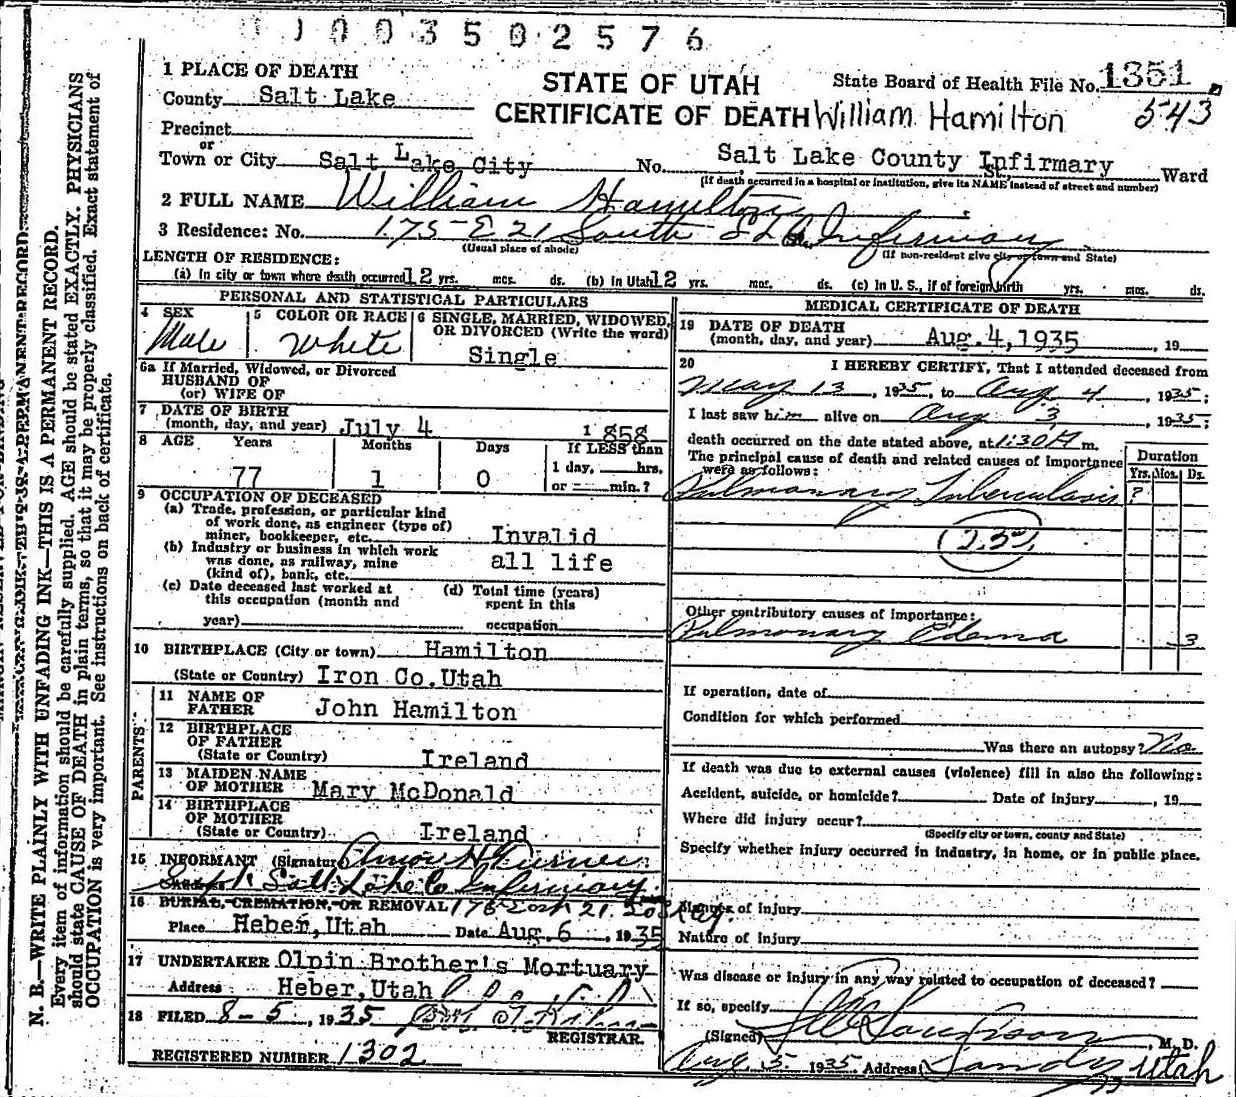 1003502576
1 PLACE OF DEATH
County Salt Lake
Precinct
or
Town or City Salt Lake City No. Salt Lake County Infirmary St., Ward
(If death occurred in a hospital or institution, give its NAME instead of street and number)
STATE OF UTAH
CERTIFICATE OF DEATH William Hamilton
State Board of Health File No. 1351
543
2 FULL NAME William Hamilton
3 Residence: No. 175-E 21 South S L Co. Infirmary
(Usual place of abode) (If non-resident give city or town and State)
LENGTH OF RESIDENCE:
(a) In city or town where death occurred 12 yrs. mos. ds. (b) In Utah 12 yrs. mos. ds. (c) In U. S., if of foreign birth yrs. mos. ds.
PERSONAL AND STATISTICAL PARTICULARS
4 SEX
Male
5 COLOR OR RACE
White
6 SINGLE, MARRIED, WIDOWED,
OR DIVORCED (Write the word)
Single
6a If Married, Widowed, or Divorced
HUSBAND OF
(or) WIFE OF
7 DATE OF BIRTH
(month, day, and year) July 4 1858
8 AGE Years Months Days If LESS than
77 1 0 1 day, hrs.
or min.?
9 OCCUPATION OF DECEASED
(a) Trade, profession, or particular kind
of work done, as engineer (type of)
miner, bookkeeper, etc. Invalid
(b) Industry or business in which work
was done, as railway, mine
(kind of), bank, etc. all life
(c) Date deceased last worked at
this occupation (month and
year)
(d) Total time (years)
spent in this
occupation
10 BIRTHPLACE (City or town) Hamilton
(State or Country) Iron Co. Utah
PARENTS
11 NAME OF
FATHER John Hamilton
12 BIRTHPLACE
OF FATHER
(State or Country) Ireland
13 MAIDEN NAME
OF MOTHER Mary McDonald
14 BIRTHPLACE
OF MOTHER
(State or Country) Ireland
15 INFORMANT (Signature) Amos H Turner
Supt. Salt Lake Co Infirmary
16 BURIAL, CREMATION, OR REMOVAL 175 East 21. So
Place Heber, Utah Date Aug. 6, 1935
17 UNDERTAKER Olpin Brother's Mortuary
Address Heber, Utah
18 FILED 8-5, 1935
REGISTRAR.
REGISTERED NUMBER 1302
MEDICAL CERTIFICATE OF DEATH
19 DATE OF DEATH
(month, day, and year) Aug. 4, 1935, 19
20 I HEREBY CERTIFY, That I attended deceased from
May 13, 1935, to Aug 4, 1935;
I last saw him alive on Aug 3, 1935;
death occurred on the date stated above, at 1:30 A m.
The principal cause of death and related causes of importance
were as follows:
Duration
Yrs. Mos. Ds.
Pulmonary Tuberculosis ?
Other contributory causes of importance:
Pulmonary Edema 3
If operation, date of
Condition for which performed
Was there an autopsy? No
If death was due to external causes (violence) fill in also the following:
Accident, suicide, or homicide? Date of injury, 19
Where did injury occur?
(Specify city or town, county and State)
Specify whether injury occurred in industry, in home, or in public place.
Manner of injury
Nature of injury
Was disease or injury in any way related to occupation of deceased?
If so, specify
(Signed) , M. D.
Aug. 5. 1935. Address Sandy Utah
N. B.—WRITE PLAINLY WITH UNFADING INK—THIS IS A PERMANENT RECORD.
Every item of information should be carefully supplied. AGE should be stated EXACTLY. PHYSICIANS
should state CAUSE OF DEATH in plain terms, so that it may be properly classified. Exact statement of
OCCUPATION is very important. See instructions on back of certificate.